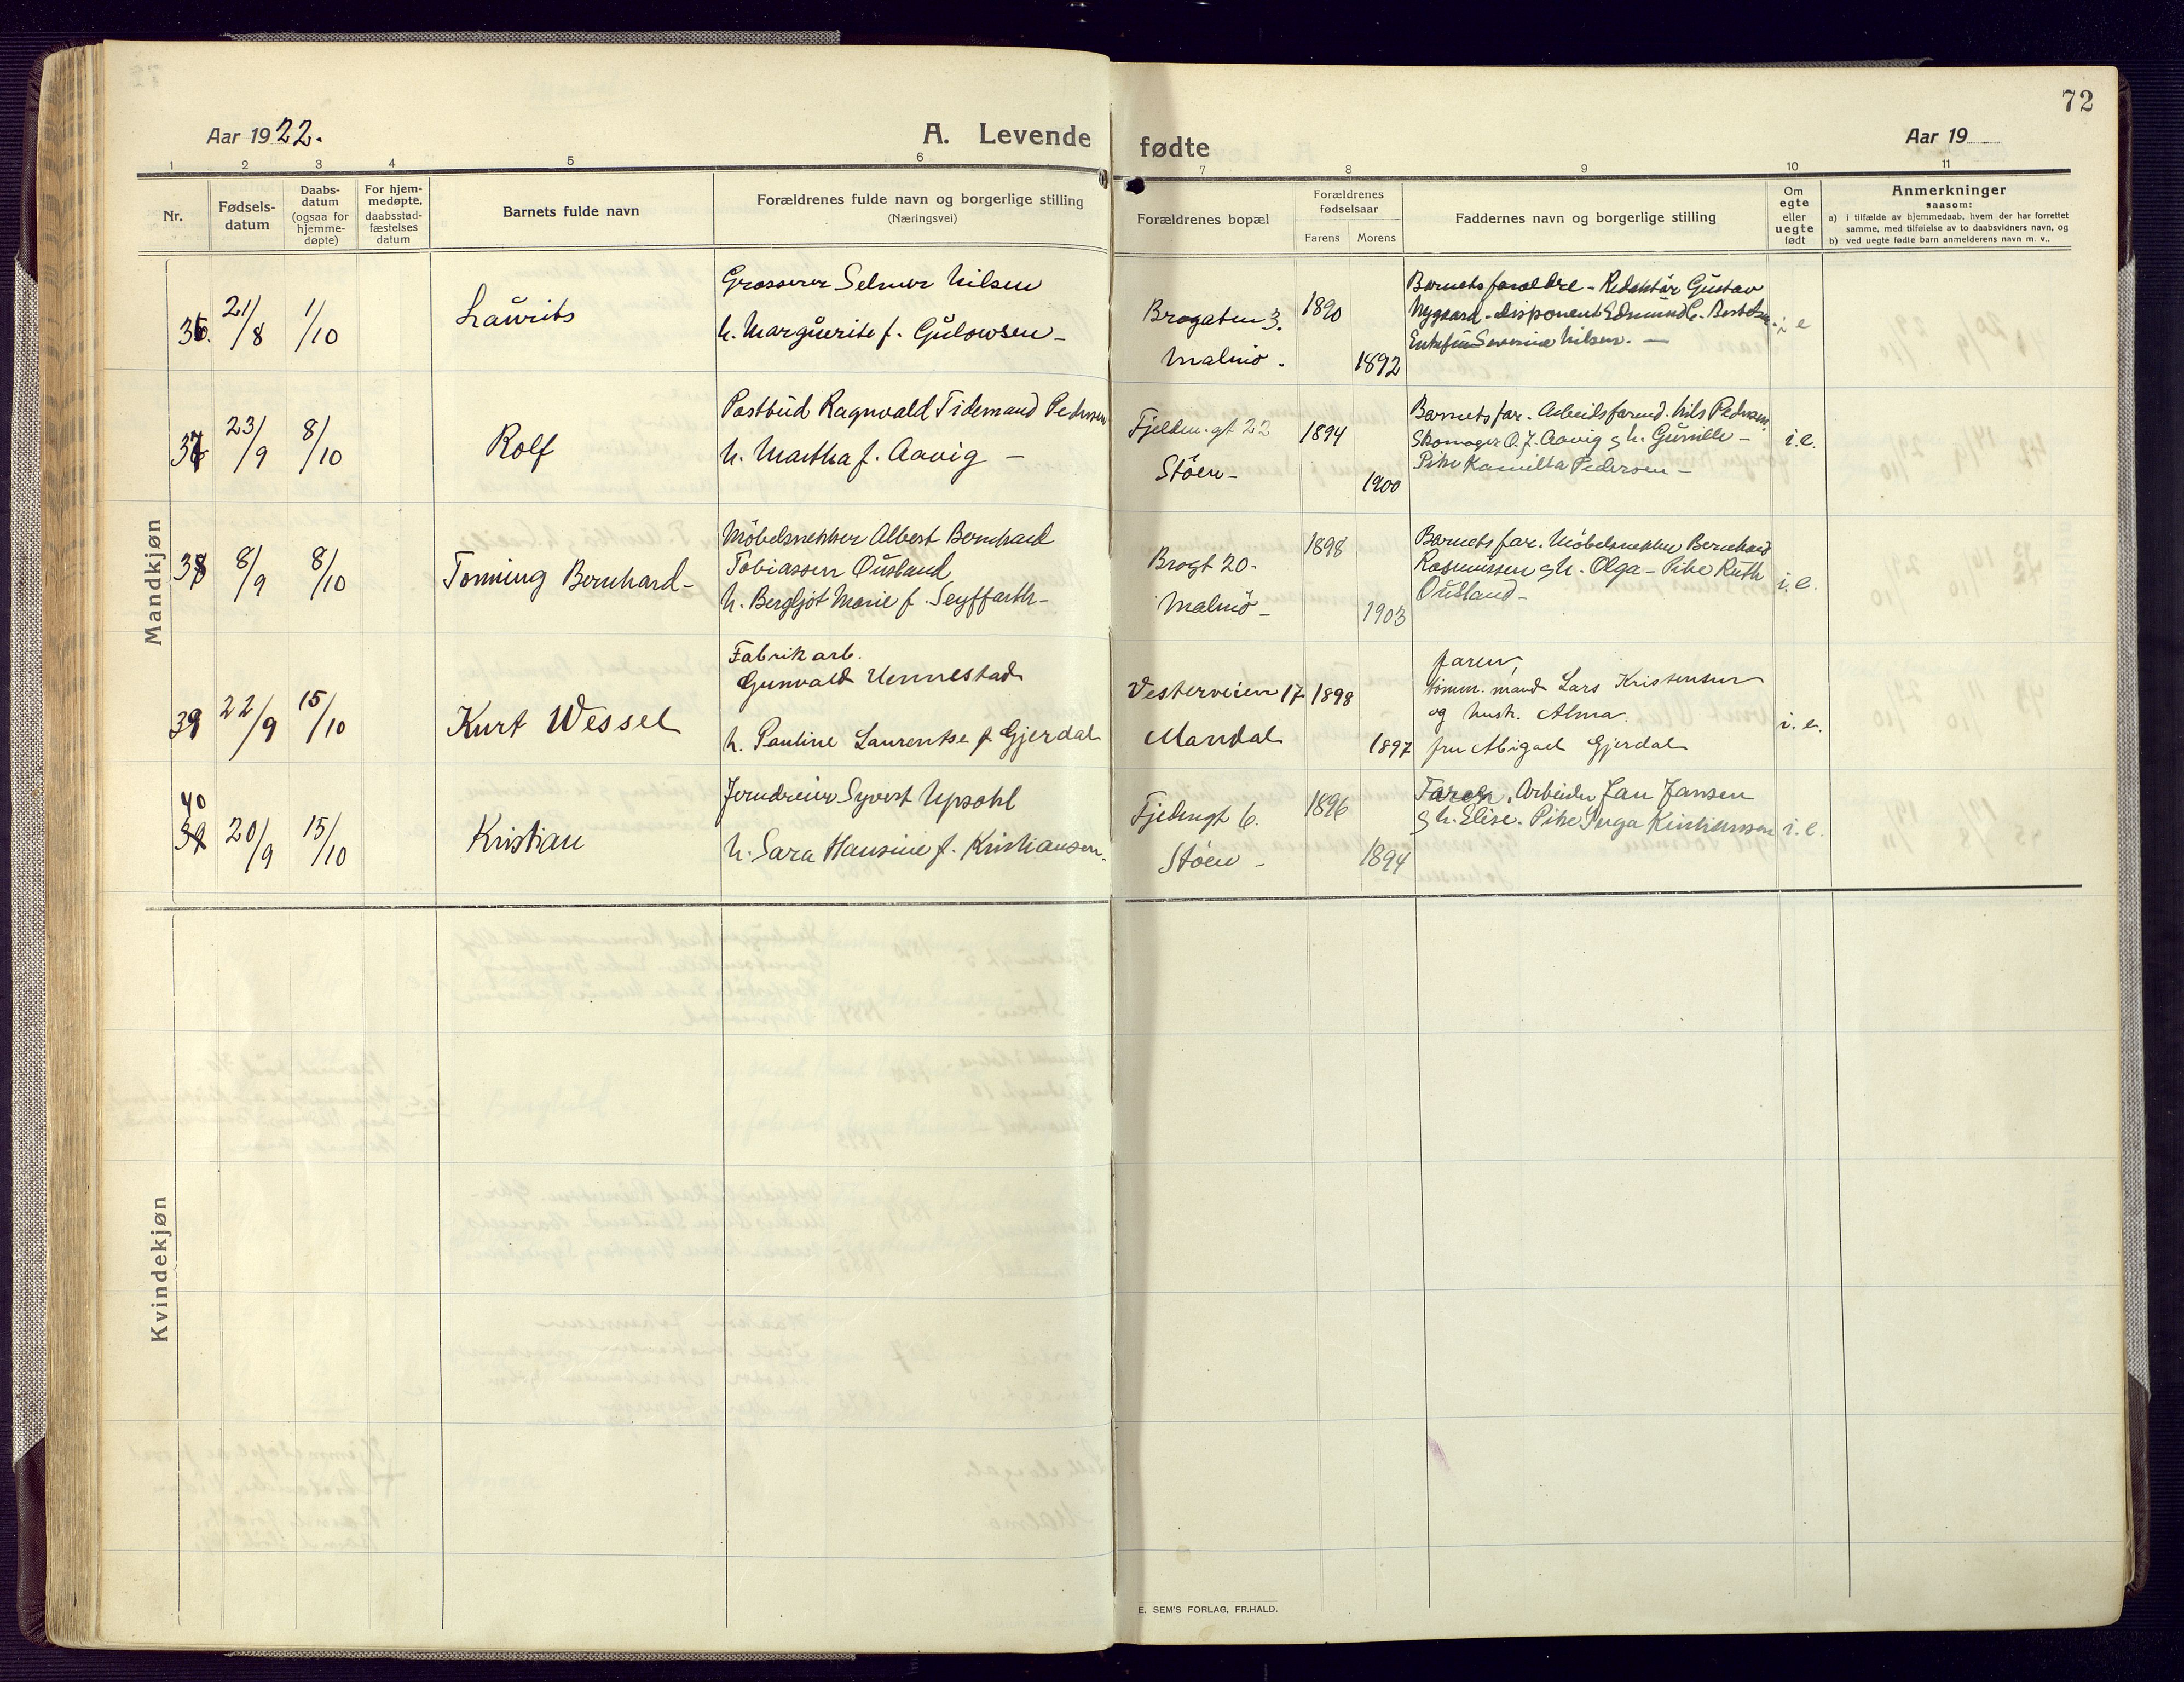 72
Aar 1922.
A. Levende fødte
Aar 19
1 2 3 4 5 6 7 8 9 10 11
Nr.
Fødsels-
datum
Daabs-
datum
(ogsaa for
hjemme-
døpte)
For hjem-
medøpte,
daabsstad-
fæstelses
datum
Barnets fulde navn
Forældrenes fulde navn og borgerlige stilling
(Næringsvei)
Forældrenes bopæl
Forældrenes
fødselsaar
Farens Morens
Faddernes navn og borgerlige stilling
Om
egte
eller
uegte
født
Anmerkninger
saasom:
a) i tilfælde av hjemmedaab, hvem der har forrettet
samme, med tilføielse av to daabsvidners navn, og
b) ved uegte fødte barn anmelderens navn m. v..
Mandkjøn
36. 21/8 1/10
Laurits
Grosserer Selmer Nilsen
h. Marguerite f. Gulowsen -
Brogaten 3.
Malmö.
1890
1892
Barnets forældre - Redaktör Gustav
Nygaard - Disponent Edmund C.
Enkefru Severine Nilsen. -
i e
37 23/9 8/10
Rolf
Postbud Ragnvald Tidemand Pedersen
h. Martha f. Aavig -
Fjelden.gt 22
Stöen -
1894
1900
Barnets far. Arbeidsformd. Nils Pedersen
Skomager O. J. Aavig & h. Gunille -
Pike Kamilla Pedersen -
i. e.
38 8/9 8/10
Tonning Bernhard -
Möbelsnekker Albert Bernhard
Tobiassen Ousland
h. Bergljot Marie f. Seyffarth -
Brogt 20.
Malmö -
1898
1903
Barnets far. Möbelsnekker Bernhard
Rasmussen & h. Olga - Pike Ruth
Ousland -
i. e.
39 22/9 15/10
Kurt Wessel
Fabrikarb.
Gunvald Vennestad
h. Pauline Laurentse f. Gjerdal
Vesterveien 17
Mandal
1898
1897
faren,
tömm. mand Lars Kristensen
og hustr. Alma.
fru Abigael Gjerdal
i. e.
40
39 20/9 15/10
Kristian
Jerndreier Syvert Upsahl
h. Sara Hansine f. Kristiansen.
Fjeldengt 6.
Stöen -
1896
1894
Faren, Arbeider Jan Jansen
& h. Elise. Pike Inga Kristiansen
i. e.
Kvindekjøn
E. SEM'S FORLAG, FR.HALD.